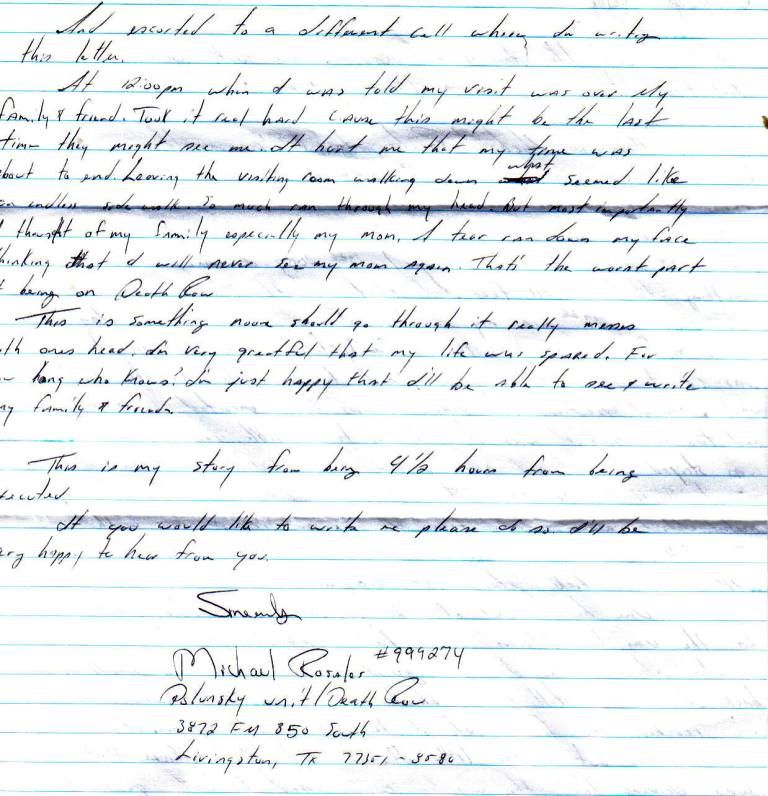 And escorted to a different cell where Im writing
this letter.
At 12:00pm when I was told my visit was over My
family & friend. Took it real hard cause this might be the last
time they might see me. It hurt me that my time was
bout to end. Leaving the visiting room walking down what seemed like
an endless side walk. So much ran through my head. But most importantly
I thought of my family especially my mom. A tear ran down my face
hinking that I will never see my mom again. That's the worst part
being on Death Row
This is something noone should go through it really messes
ith ones head. Im very greatful that my life was spared. For
long who knows! Im just happy that I'll be able to see & write
my family & friends
This is my story from being 4 1/2 hours from being
xecuted.
If you would like to write me please do so I'll be
ery happy to hear from you.
Sincerely
Michael Rosales #999274
Polunsky unit/Death Row
3872 FM 350 South
Livingston, TX 77351-8580